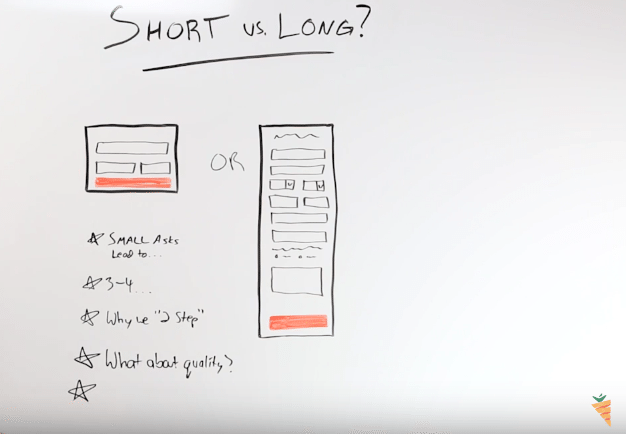 SHORT vs. LONG?
OR
SMALL Asks
Lead to...
3-4...
"2 Step"
What about quality?